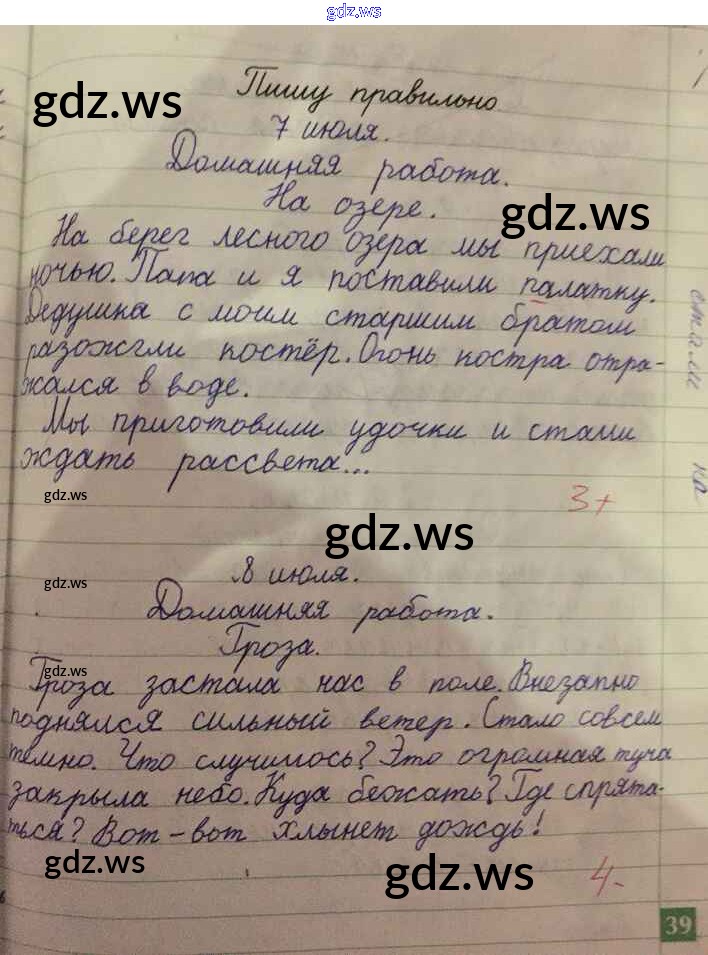 gdz.ws
Пишу правильно
gdz.ws
7 июля.
Домашняя работа.
На озере.
gdz.ws
На берег лесного озера мы приехали
ночью. Папа и я поставили палатку.
Дедушка с моим старшим братом
разожгли костёр. Огонь костра отра-
жался в воде.
Мы приготовили удочки и стали
ждать рассвета...
стали
ка
gdz.ws
3+
gdz.ws
8 июля.
gdz.ws
Домашняя работа.
Гроза.
gdz.ws
Гроза застала нас в поле. Внезапно
поднялся сильный ветер. Стало совсем
темно. Что случилось? Это огромная туча
закрыла небо. Куда бежать? Где спрята-
ться? Вот-вот хлынет дождь!
gdz.ws
gdz.ws
4-
39